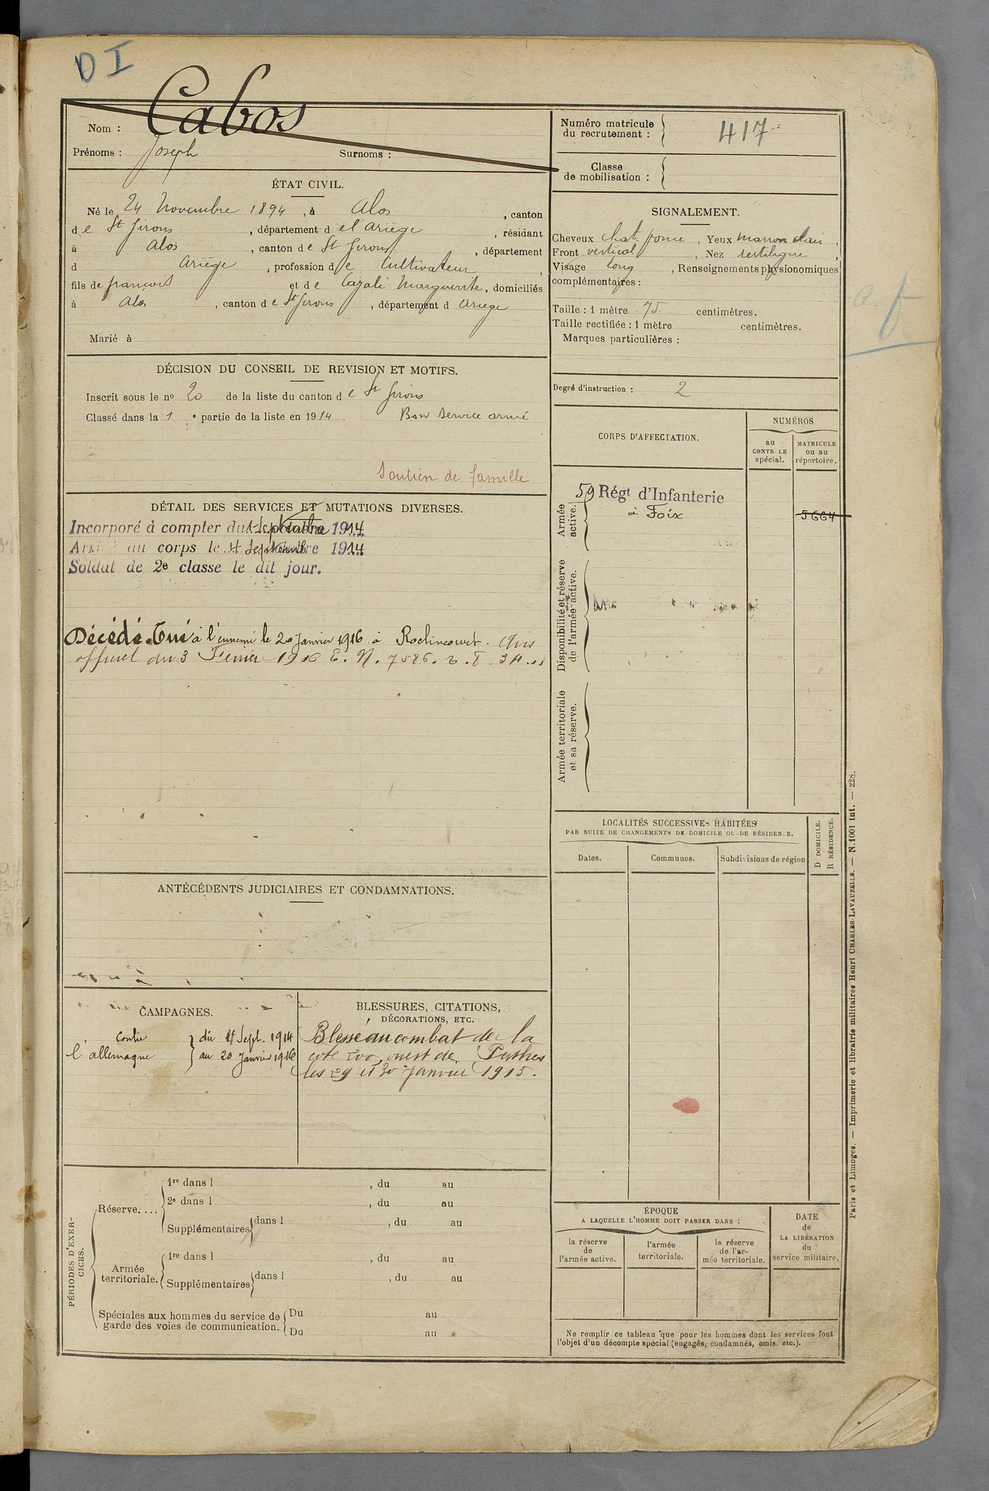 D I
Nom : Cabos
Prénoms : Joseph Surnoms :
Numéro matricule du recrutement : 417
Classe de mobilisation :
ÉTAT CIVIL.
Né le 24 Novembre 1894, à Alos, canton
de St Girons, département de l'Ariège, résidant
à Alos, canton de St Girons, département
d Ariège, profession de Cultivateur,
fils de françois et de Cazalé Marguerite, domiciliés
à Alos, canton de St Girons, département d Ariège
Marié à
SIGNALEMENT.
Cheveux chat. fonce, Yeux marron clair,
Front vertical, Nez rectiligne,
Visage long, Renseignements physionomiques
complémentaires :
Taille : 1 mètre 75 centimètres.
Taille rectifiée : 1 mètre centimètres.
Marques particulières :
Degré d'instruction : 2
DÉCISION DU CONSEIL DE REVISION ET MOTIFS.
Inscrit sous le no 20 de la liste du canton de St Girons
Classé dans la 1 e partie de la liste en 1914. Bon service armé
Soutien de famille
CORPS D'AFFECTATION.
NUMÉROS
au CONTRÔLE spécial.
MATRICULE ou au répertoire.
Armée active.
59 Régt d'Infanterie
à Foix
5664
Disponibilité et réserve de l'armée active.
Armée territoriale et sa réserve.
DÉTAIL DES SERVICES ET MUTATIONS DIVERSES.
Incorporé à compter du Septembre 1914
au corps le Septembre 1914
Soldat de 2e classe le dit jour.
Décédé. Tué à l'ennemi le 20 Janvier 1916 à Roclincourt. Avis
officiel du 3 Février 1916 E. N. 7586.
LOCALITÉS SUCCESSIVES HABITÉES
PAR SUITE DE CHANGEMENTS DE DOMICILE OU DE RÉSIDENCE.
Dates. Communes. Subdivisions de région
D DOMICILE.
R RÉSIDENCE.
ANTÉCÉDENTS JUDICIAIRES ET CONDAMNATIONS.
CAMPAGNES.
contre l'allemagne
du Sept. 1914
au 20 Janvier 1916
BLESSURES, CITATIONS,
DÉCORATIONS, ETC.
Blessé au combat de la
cote 200 ouest de Perthes
les 29 et 30 Janvier 1915.
PÉRIODES D'EXERCICES.
Réserve....
1re dans l , du au
2e dans l , du au
Supplémentaires dans l , du au
Armée territoriale.
1re dans l , du au
Supplémentaires dans l , du au
Spéciales aux hommes du service de garde des voies de communication.
Du au
Du au
ÉPOQUE
A LAQUELLE L'HOMME DOIT PASSER DANS :
la réserve de l'armée active.
l'armée territoriale.
la réserve de l'armée territoriale.
DATE de LA LIBÉRATION du service militaire.
Ne remplir ce tableau que pour les hommes dont les services font
l'objet d'un décompte spécial (engagés, condamnés, omis, etc.).
Paris et Limoges. — Imprimerie et librairie militaires Henri CHARLES-LAVAUZELLE. — N. 1001 int. — 228.